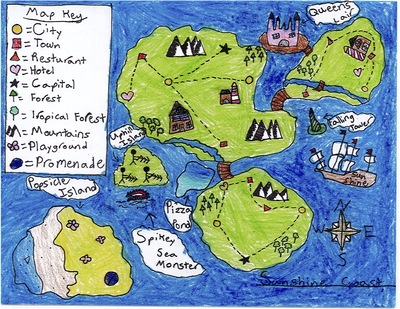 Map Key
= City
= Town
= Resturant
= Hotel
= Capital
= Forest
= Tropical Forest
= Mountains
= Playground
= Promenade
Queens
Lair
Uphill
Island
Falling
Tower
Sun
Shine
Popsicle
Island
Pizza
Pond
Spikey
Sea
Monster
N
W
E
S
Sunshine Coast